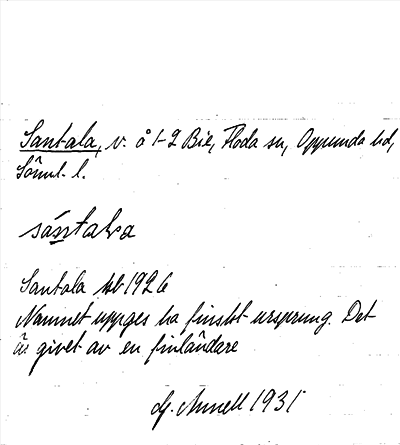 Santala, v. å 1-2 Bie, Floda sn, Oppunda hd,
Södml. l.
sántaƚa
Santala jb 1926
Namnet uppges ha finskt ursprung. Det
är givet av en finländare
Annell 1931